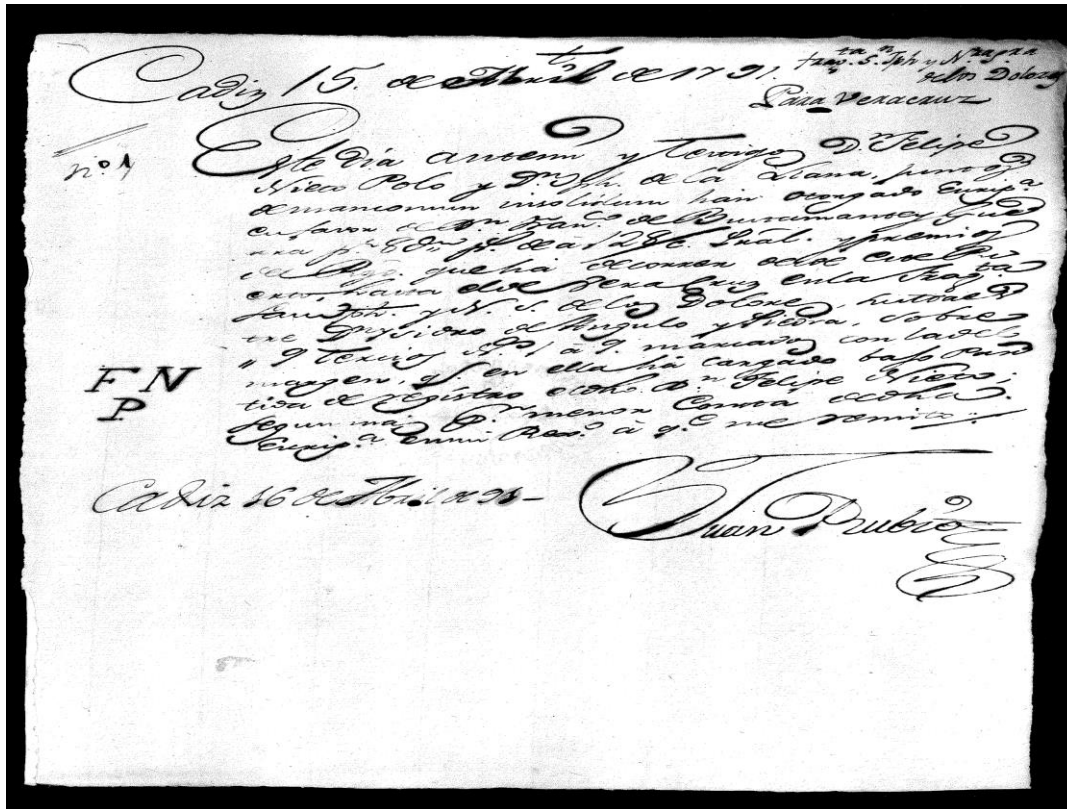 Cadiz 15. de Abril de 1791.
frag.ta S.n Jph y N.ra S.ra
de los Dolores
Para Veracruz
nº 1
Este dia antemi y testigos D.n Felipe
Nieto Polo y D.n Jph. de la Llana, juntos
demancomun insolidum han otorgado Escrip.a
en favor de D.n Fran.co de Bustamante y Gue
rra p.r
de Rgo. que ha de correr desde este Pu
erto, hasta el de Veracruz en la Frag.ta
San Jph. y N. S. de los Dolores, su Maes
tre D.n Ysidro de Angulo y Piedra, sobre
9 Tercios nº 1 à 9. marcados con la del
margen, q.e en ella há cargado bajo Par
tida de registro dedho. D.n Felipe Nieto;
segun mas p.r menor Consta dedha.
Escrip.a en mi Reg.o à q.e me remito
F N
P
Cadiz 16 de Abril de 91 -
Juan Rubio